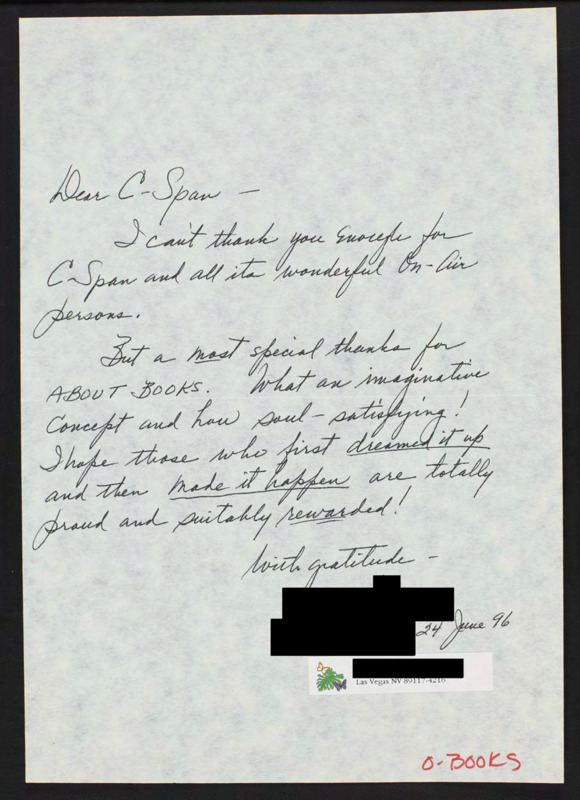 Dear C-Span —
I can't thank you enough for
C-Span and all its wonderful On-Air
persons.
But a most special thanks for
ABOUT BOOKS. What an imaginative
concept and how soul-satisfying!
I hope those who first dreamed it up
and then made it happen are totally
proud and suitably rewarded!
With gratitude —
24 June 96
Las Vegas NV 89117-4216
O-BOOKS